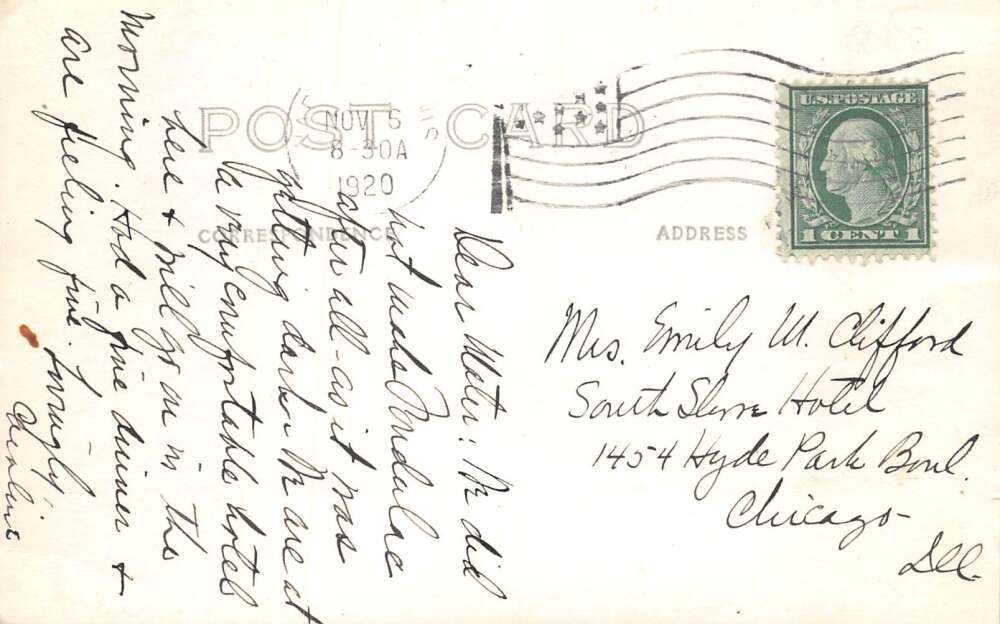 POST CARD
NOV 5
8-30A
1920
U.S. POSTAGE
1 CENT 1
CORRESPONDENCE
ADDRESS
Mrs. Emily M. Clifford
South Shore Hotel
1454 Hyde Park Boul.
Chicago
Ill.
Dear Mater: We did
not make
after all - as it was
getting dark. We are at
a very comfortable hotel
here & will go on in the
morning. Had a fine dinner &
are feeling fine. Lovingly